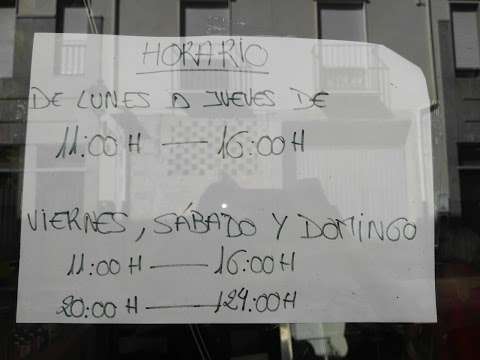 HORARIO
DE LUNES A JUEVES DE
11:00 H — 16:00 H
VIERNES, SÁBADO Y DOMINGO
11:00 H — 16:00 H
20:00 H — 124:00 H